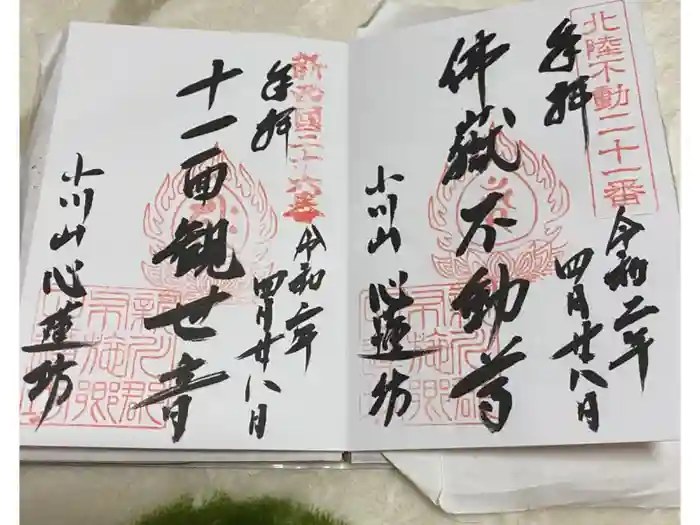 北陸不動二十一番
奉拝
令和二年
四月廿八日
佛嶽不動尊
小川山 心蓮坊
奉拝
令和二年
四月廿八日
十一面観世音
小川山 心蓮坊